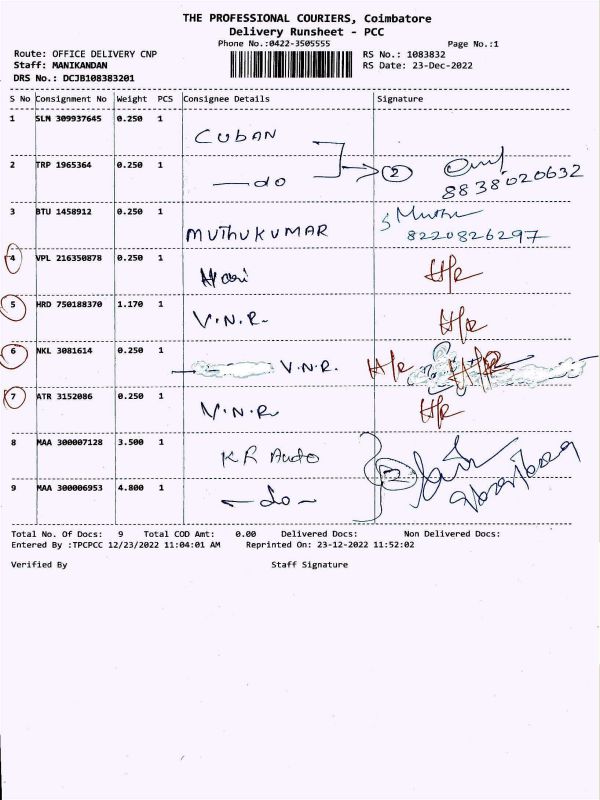 THE PROFESSIONAL COURIERS, Coimbatore
Delivery Runsheet - PCC
Phone No.:0422-3505555 Page No.:1
Route: OFFICE DELIVERY CNP RS No.: 1083832
Staff: MANIKANDAN RS Date: 23-Dec-2022
DRS No.: DCJB108383201
S No Consignment No Weight PCS Consignee Details Signature
1 SLM 309937645 0.250 1 CUBAN
2 TRP 1965364 0.250 1 do 2
8838020632
3 BTU 1458912 0.250 1 MUTHUKUMAR S Muthu
8220826297
4 VPL 216350878 0.250 1 Hari H/R
5 HRD 750188370 1.170 1 V.N.R. H/R
6 NKL 3081614 0.250 1 V.N.R. H/R H/R
7 ATR 3152086 0.250 1 V.N.R H/R
8 MAA 300007128 3.500 1 KR Auto 2
9 MAA 300006953 4.800 1 - do -
Total No. Of Docs: 9 Total COD Amt: 0.00 Delivered Docs: Non Delivered Docs:
Entered By :TPCPCC 12/23/2022 11:04:01 AM Reprinted On: 23-12-2022 11:52:02
Verified By Staff Signature